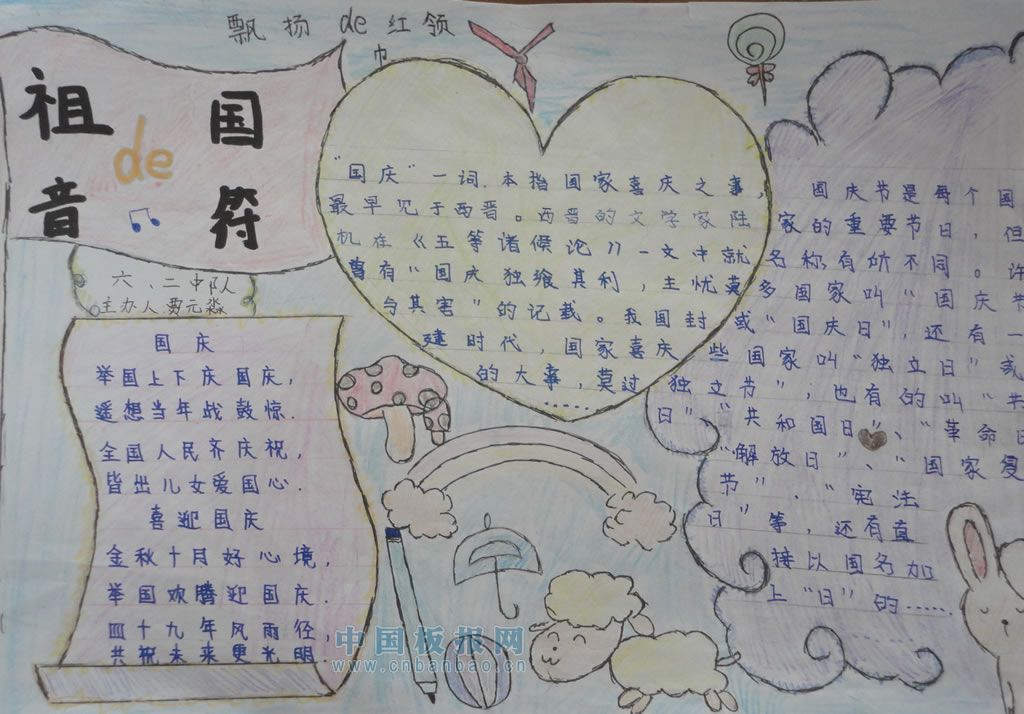 飘扬de红领
巾
祖国
de
音符
六、二中队
主办人:贾元淼
国庆
举国上下庆国庆，
遥想当年战鼓惊.
全国人民齐庆祝，
皆出儿女爱国心.
喜迎国庆
金秋十月好心境，
举国欢腾迎国庆.
四十九年风雨径，
共祝未来更光明.
“国庆”一词.本指国家喜庆之事，
最早见于西晋。西晋的文学家陆
机在《五等诸候论》一文中就
曾有“国庆独飨其利，主忧莫
与其害”的记载。我国封
建时代，国家喜庆
的大事，莫过
……
国庆节是每个国
家的重要节日，但
名称有所不同。许
多国家叫“国庆节
或“国庆日”，还有一
些国家叫“独立日”或
独立节”；也有的叫“共
日”“共和国日”、“革命日
“解放日”、“国家复
节”.“宪法
日”等，还有直
接以国名加
上“日”的……
中国板报网
www.cnbanbao.cn